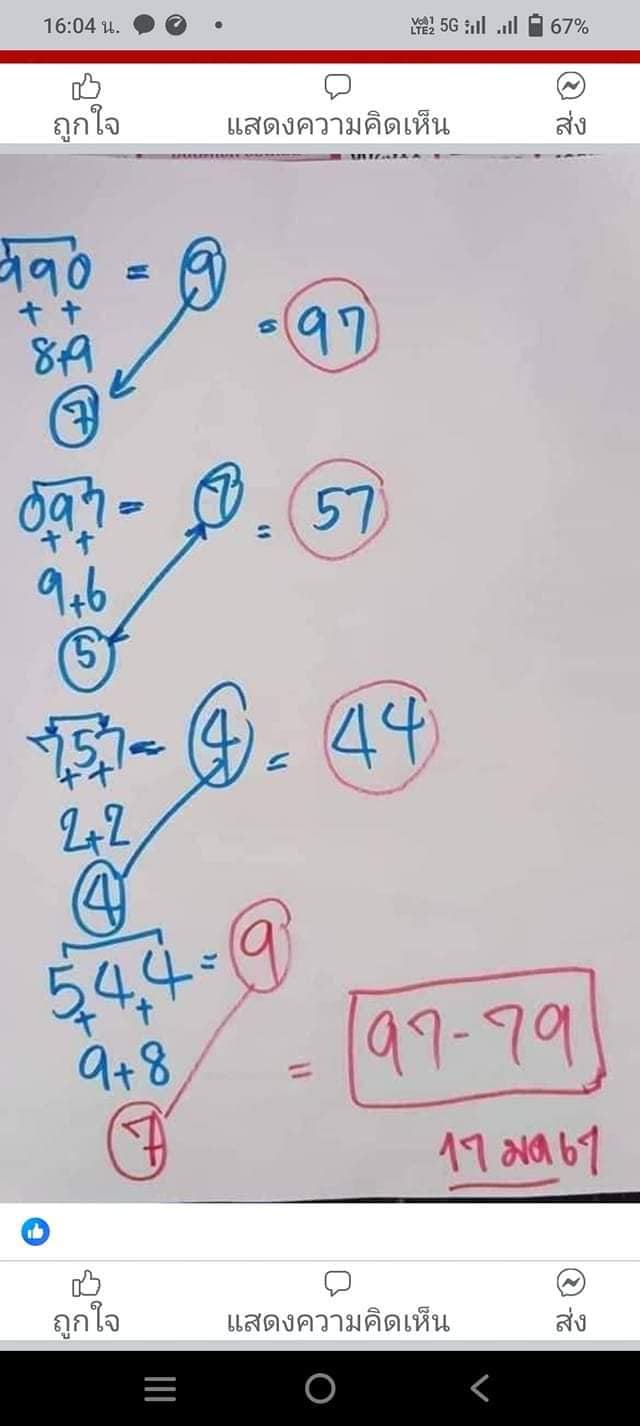 16:04 น.
Vo)) 1 LTE2 5G 67%
ถูกใจ แสดงความคิดเห็น ส่ง
990 = 9
+ +
8+9 = 97
7
097 = 7
+ + = 57
9+6
5
757 = 4 = 44
+ +
2+2
4
544 = 9
+ +
9+8 = 97-79
7
17 มค 67
ถูกใจ แสดงความคิดเห็น ส่ง